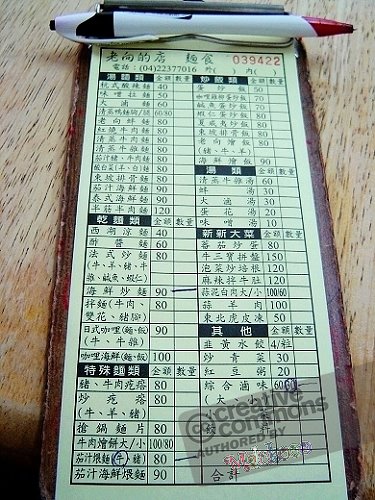 老向的店 麵食 039422
電話:(04)22377016 外( ) 內( )
湯麵類 金額 數量
杭式酸辣麵 40
味噌拉麵 50
大滷麵 60
清蒸鴨麵 60/80
老向鮮麵 80
紅燒牛肉麵 80
清蒸牛肉麵 80
清蒸羊肉麵 80
茄汁豬、牛肉麵 80
酸白菜(羊、白)麵 80
東坡排骨麵 80
茄汁海鮮麵 90
泰式海鮮麵 90
半筋半肉麵 120
乾麵類 金額 數量
西湖涼麵 40
酢醬麵 60
法式炒麵 80
(牛、羊、豬、牛
雜、鹹魚、蝦仁)
海鮮炒麵 90
拌麵(牛肉、 80
雙花、豬腳)
日式咖哩(麵、飯) 90
(牛、牛雜)
咖哩海鮮(麵、飯) 100
特殊麵類 金額 數量
豬、牛肉疙瘩 80
炒疙瘩 80
(牛、羊、豬)
搶鍋麵片 80
牛肉燴餅大/小 100/80
茄汁煨麵(牛)豬) 80
茄汁海鮮煨麵 90
炒飯類 金額 數量
蛋炒飯 50
咖哩雞柳蛋炒飯 70
鹹魚蛋炒飯 70
蝦仁蛋炒飯 80
夏威夷炒飯 80
東坡排骨飯 80
老向燴飯 80
(豬、牛、羊)
海鮮燴飯 90
湯類 金額 數量
清蒸牛雜湯 60
蚌湯 30
大滷湯 30
蛋花湯 20
味噌湯 10
新新大菜 金額 數量
蕃茄炒蛋 80
牛三寶拼盤 150
泡菜炒培根 120
麻辣拌牛肚 120
蒜泥白肉大/小 100/60
蒜羊肉 100
東北虎皮凍 50
其他 金額 數量
韭黃水餃 4/粒
炒青菜 30
紅豆粥 20
綜合滷味 60
(大、小)
合計
creative commons
AUTHORED BY